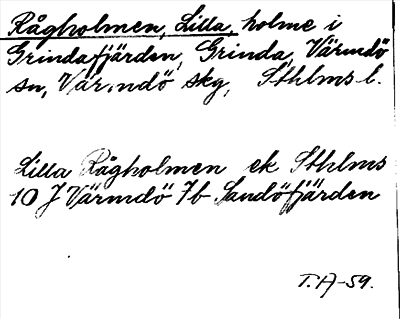 Rågholmen, Lilla, holme i
Grindafjärden, Grinda, Värmdö
sn, Värmdö skg, Sthlms l.
Lilla Rågholmen ek Sthlms
10 J Värmdö 7b Sandöfjärden
T.H-59.